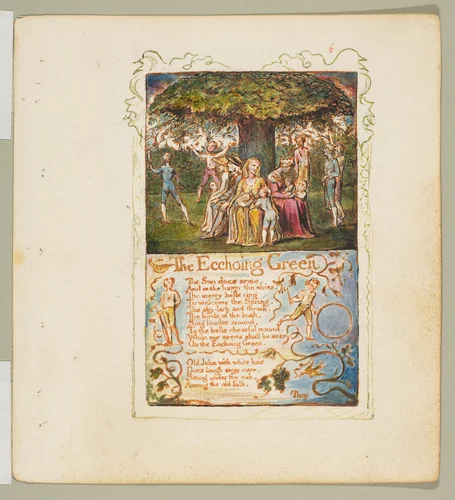 The Ecchoing Green
The Sun does arise,
And make happy the skies.
The merry bells ring
To welcome the Spring.
The sky-lark and thrush,
The birds of the bush,
Sing louder around,
To the bells chearful sound,
While our sports shall be seen
On the Ecchoing Green.
Old John with white hair
Does laugh away care,
Sitting under the oak,
Among the old folk,
They